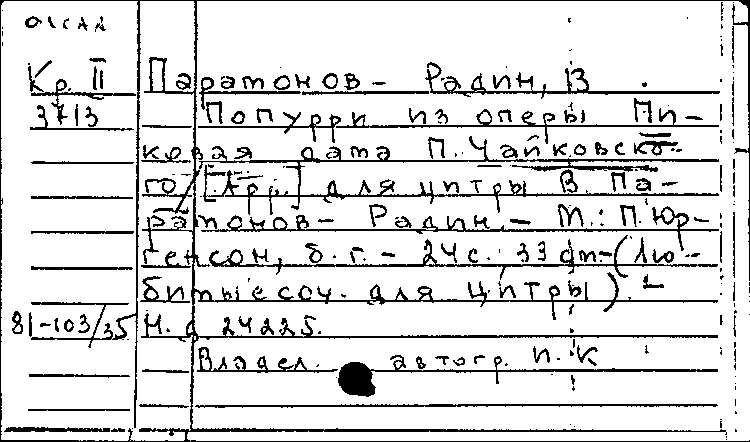 Кр. II
3713
Паратонов - Радин, В.
Попурри из оперы Пи-
ковая дама П. Чайковско-
го / [Арр.] для цитры В. Па-
ратонов - Радин. - М.: П. Юр-
генсон, б. г. - 24 с. 33 см - (Лю-
бимые соч. для цитры). -
81-103/35 Н. д. 24225.
Владел. автогр. П. К